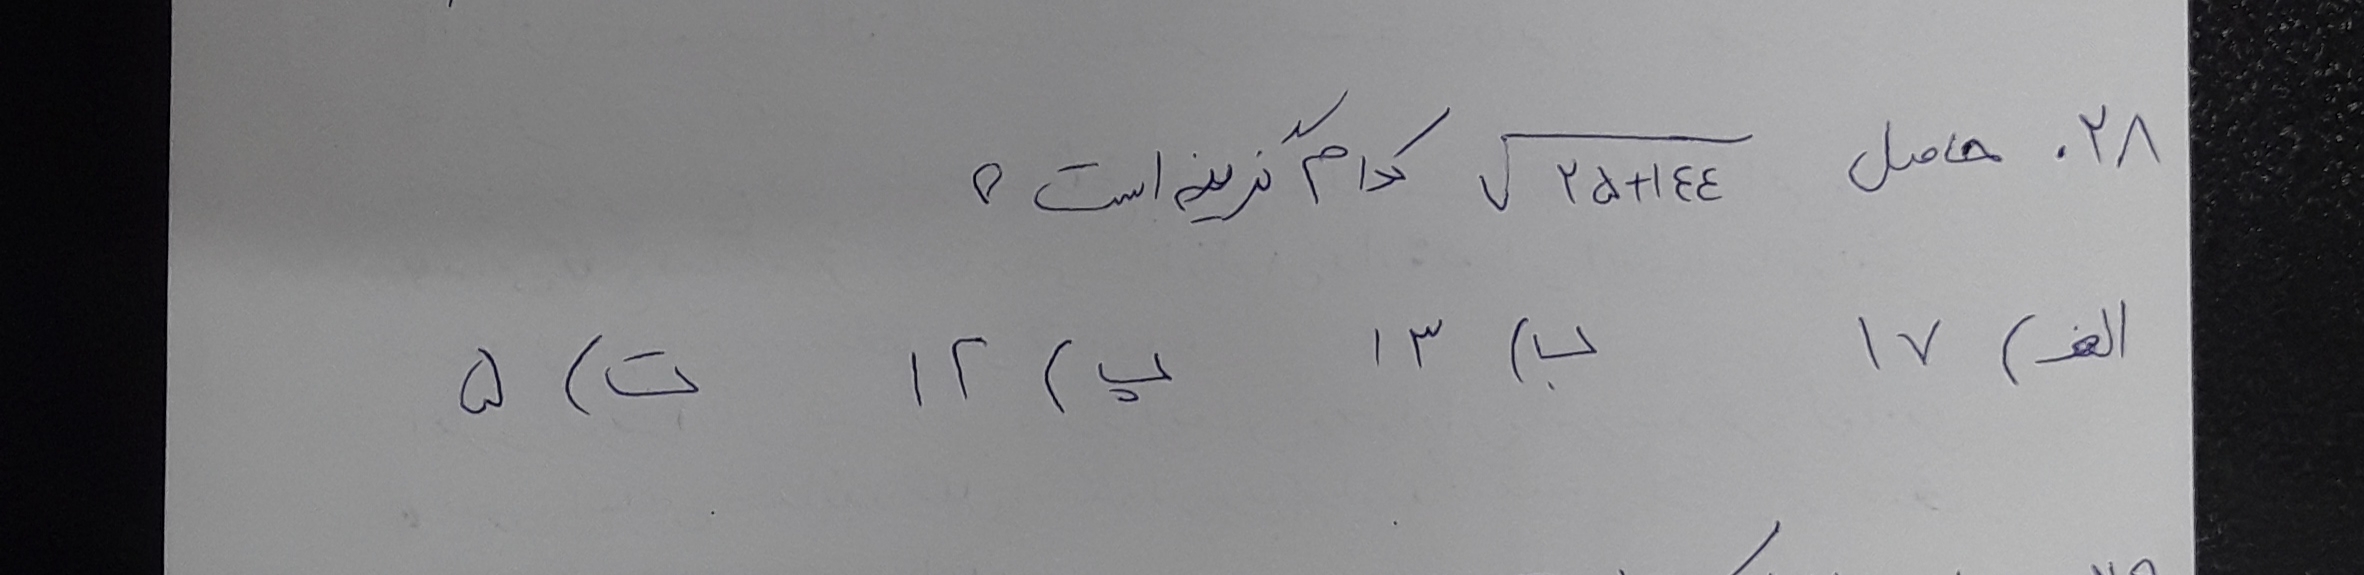 ۲۸. حاصل √۲۵+۱۴۴ کدام گزینه است ؟
الف) ۱۷ ب) ۱۳ پ) ۱۲ ت) ۵